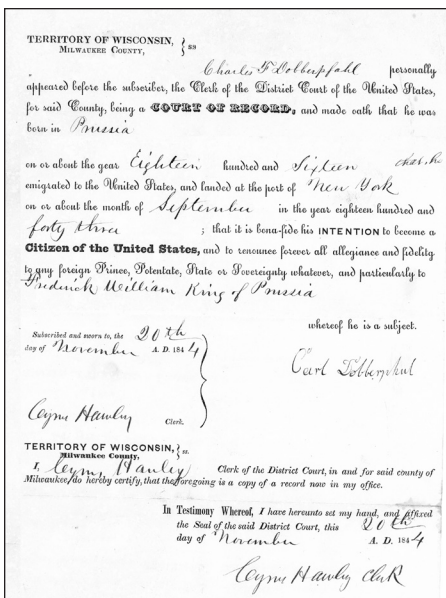 TERRITORY OF WISCONSIN, } ss
MILWAUKEE COUNTY,
Charles F Dobberpfahl personally
appeared before the subscriber, the Clerk of the District Court of the United States,
for said County, being a COURT OF RECORD, and made oath that he was
born in Prussia
on or about the year Eighteen hundred and Sixteen that he
emigrated to the United States, and landed at the port of New York
on or about the month of September in the year eighteen hundred and
forty three ; that it is bona-fide his INTENTION to become a
Citizen of the United States, and to renounce forever all allegiance and fidelity
to any foreign Prince, Potentate, State or Sovereignty whatever, and particularly to
Frederick William King of Prussia
whereof he is a subject.
Subscribed and sworn to, the 20th
day of November A. D. 1844
Carl Dobberphul
Cyrus Hawley Clerk.
TERRITORY OF WISCONSIN, } ss.
Milwaukee County,
I, Cyrus Hawley Clerk of the District Court, in and for said county of
Milwaukee do hereby certify, that the foregoing is a copy of a record now in my office.
In Testimony Whereof, I have hereunto set my hand, and affixed
the Seal of the said District Court, this 20th
day of November A. D. 1844
Cyrus Hawley Clerk